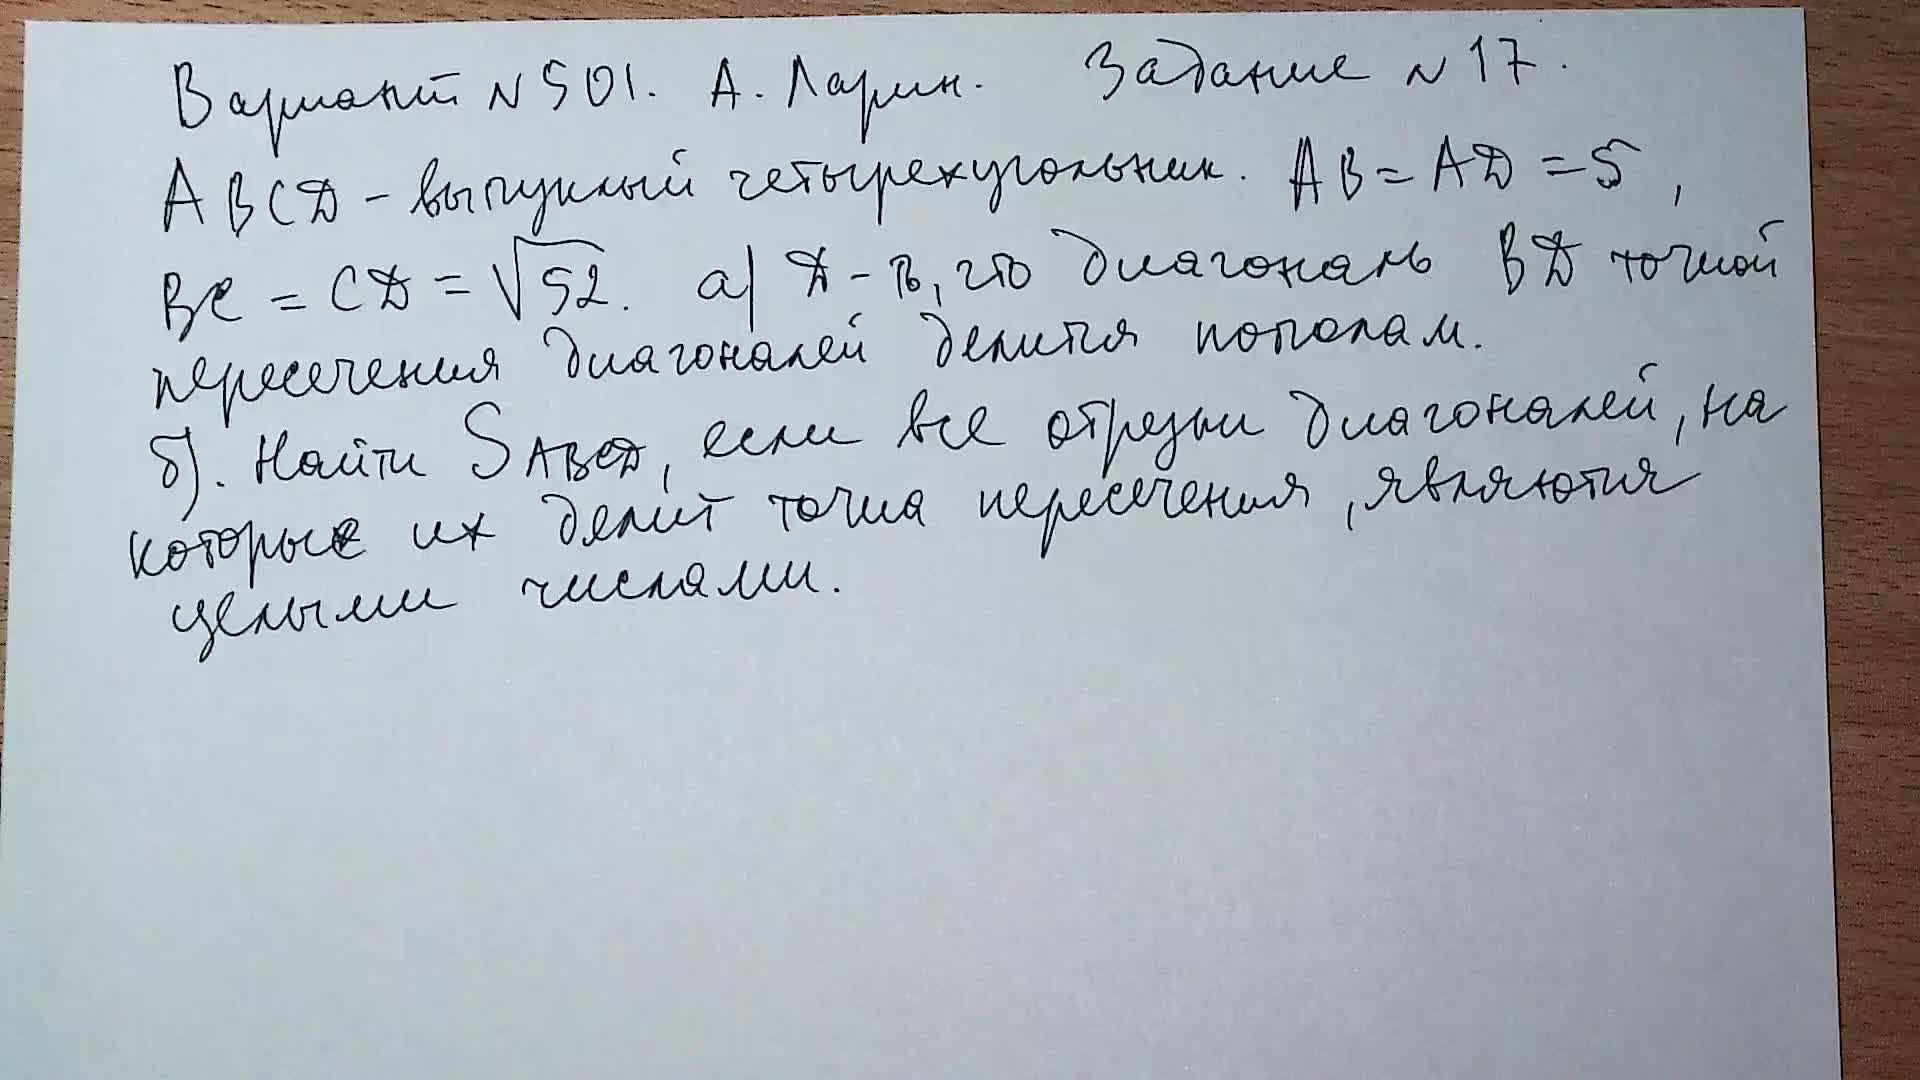 Вариант N 501. А. Ларин. Задание N 17.
ABCD - выпуклый четырехугольник. AB = AD = 5,
BC = CD = √52. а) Д-ть, что диагональ BD точкой
пересечения диагоналей делится пополам.
б). Найти S ABCD, если все отрезки диагоналей, на
которые их делит точка пересечения, являются
целыми числами.